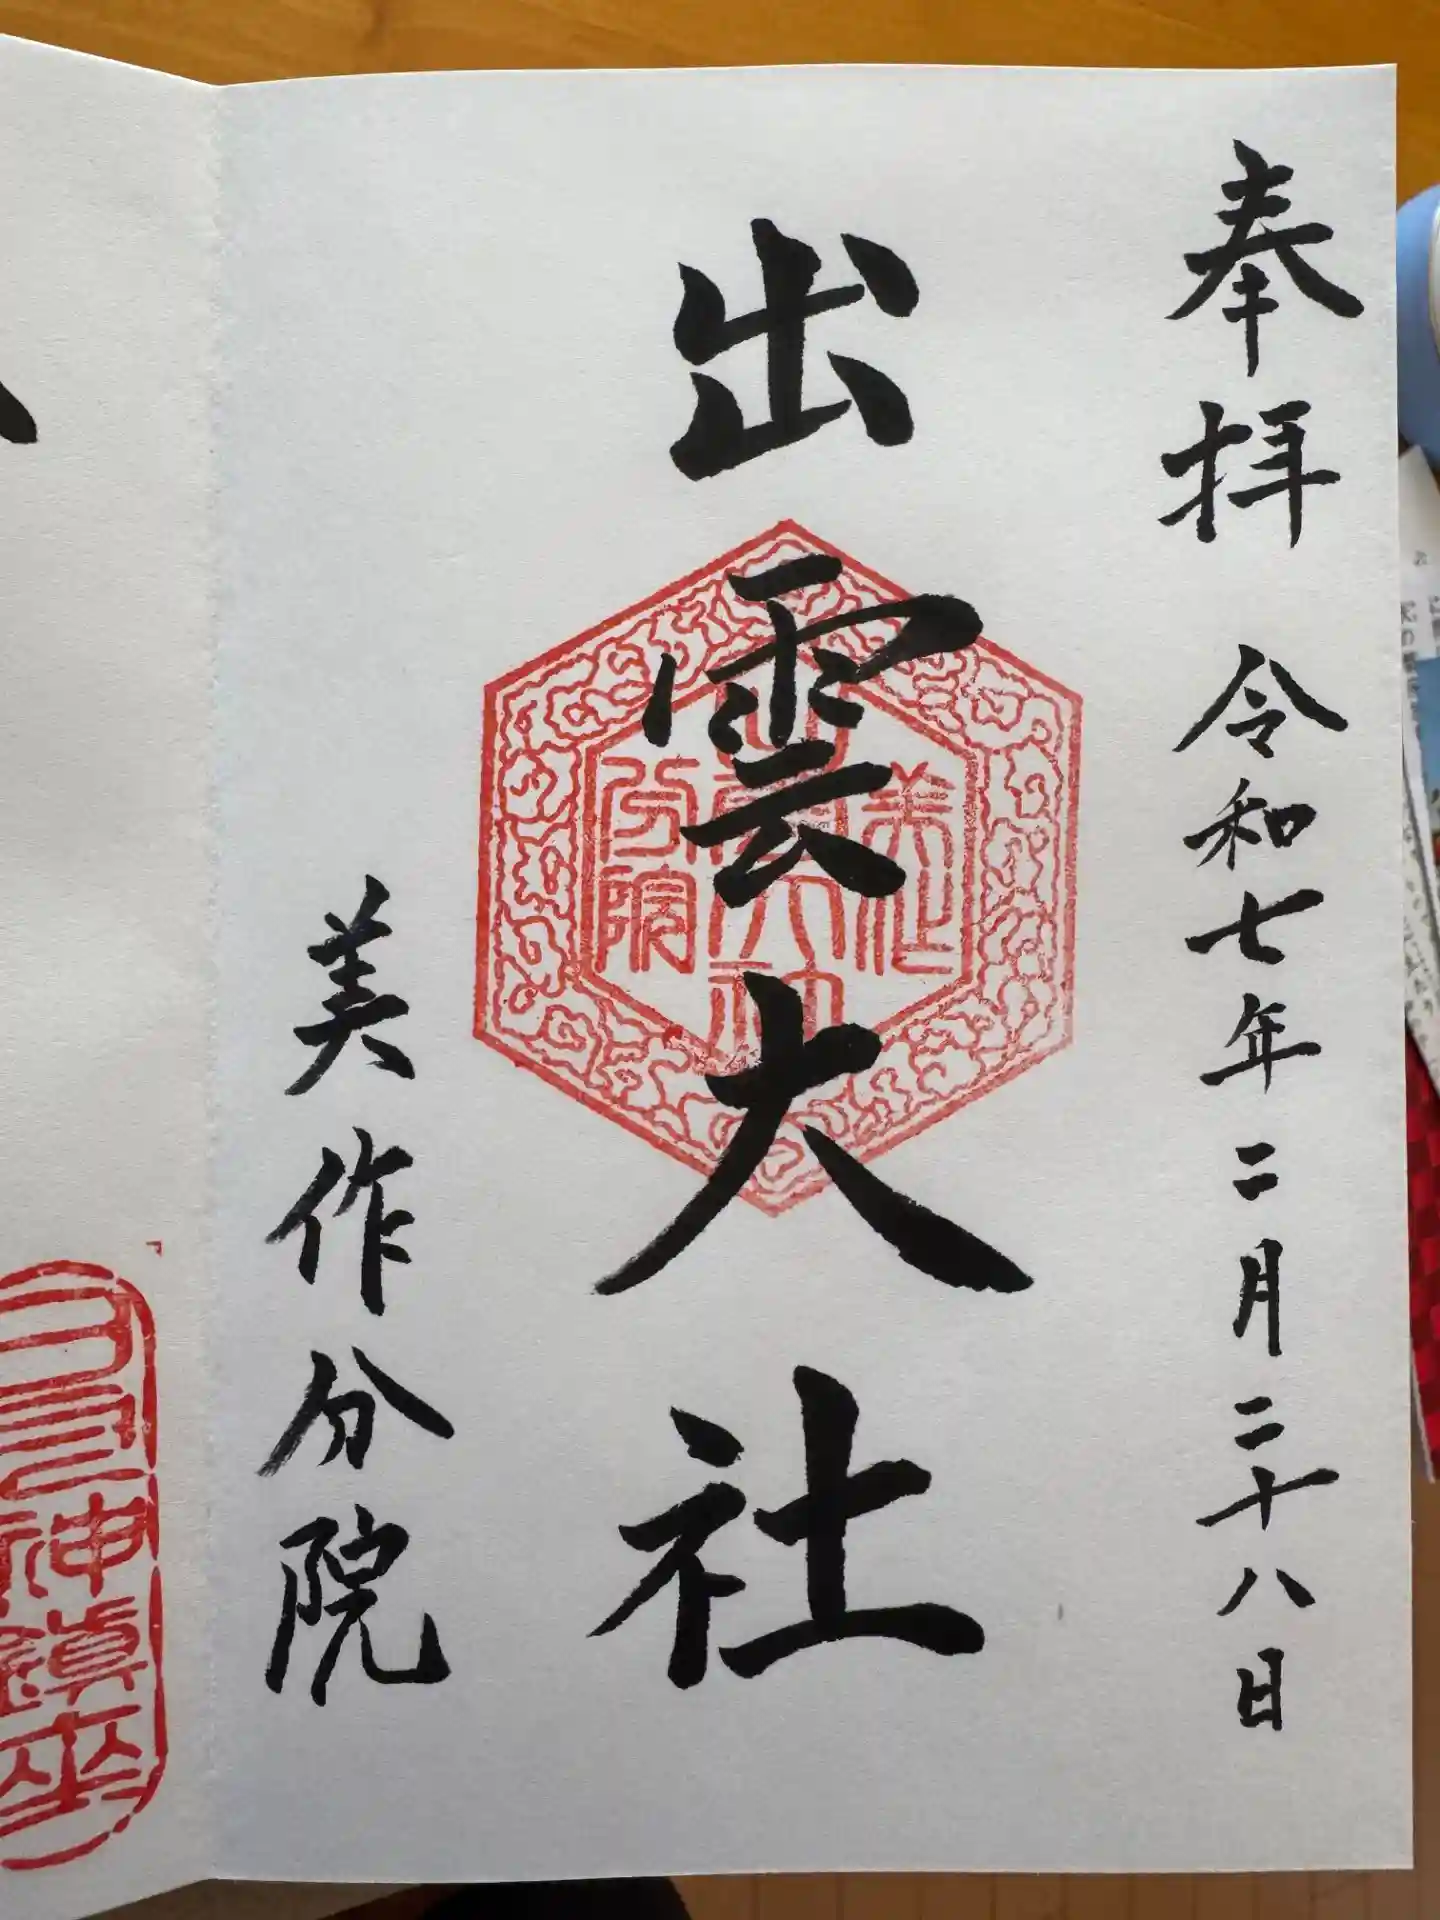 奉拝 令和七年二月二十八日
出雲大社
美作分院
美作
出雲大社
分院
神鎮座